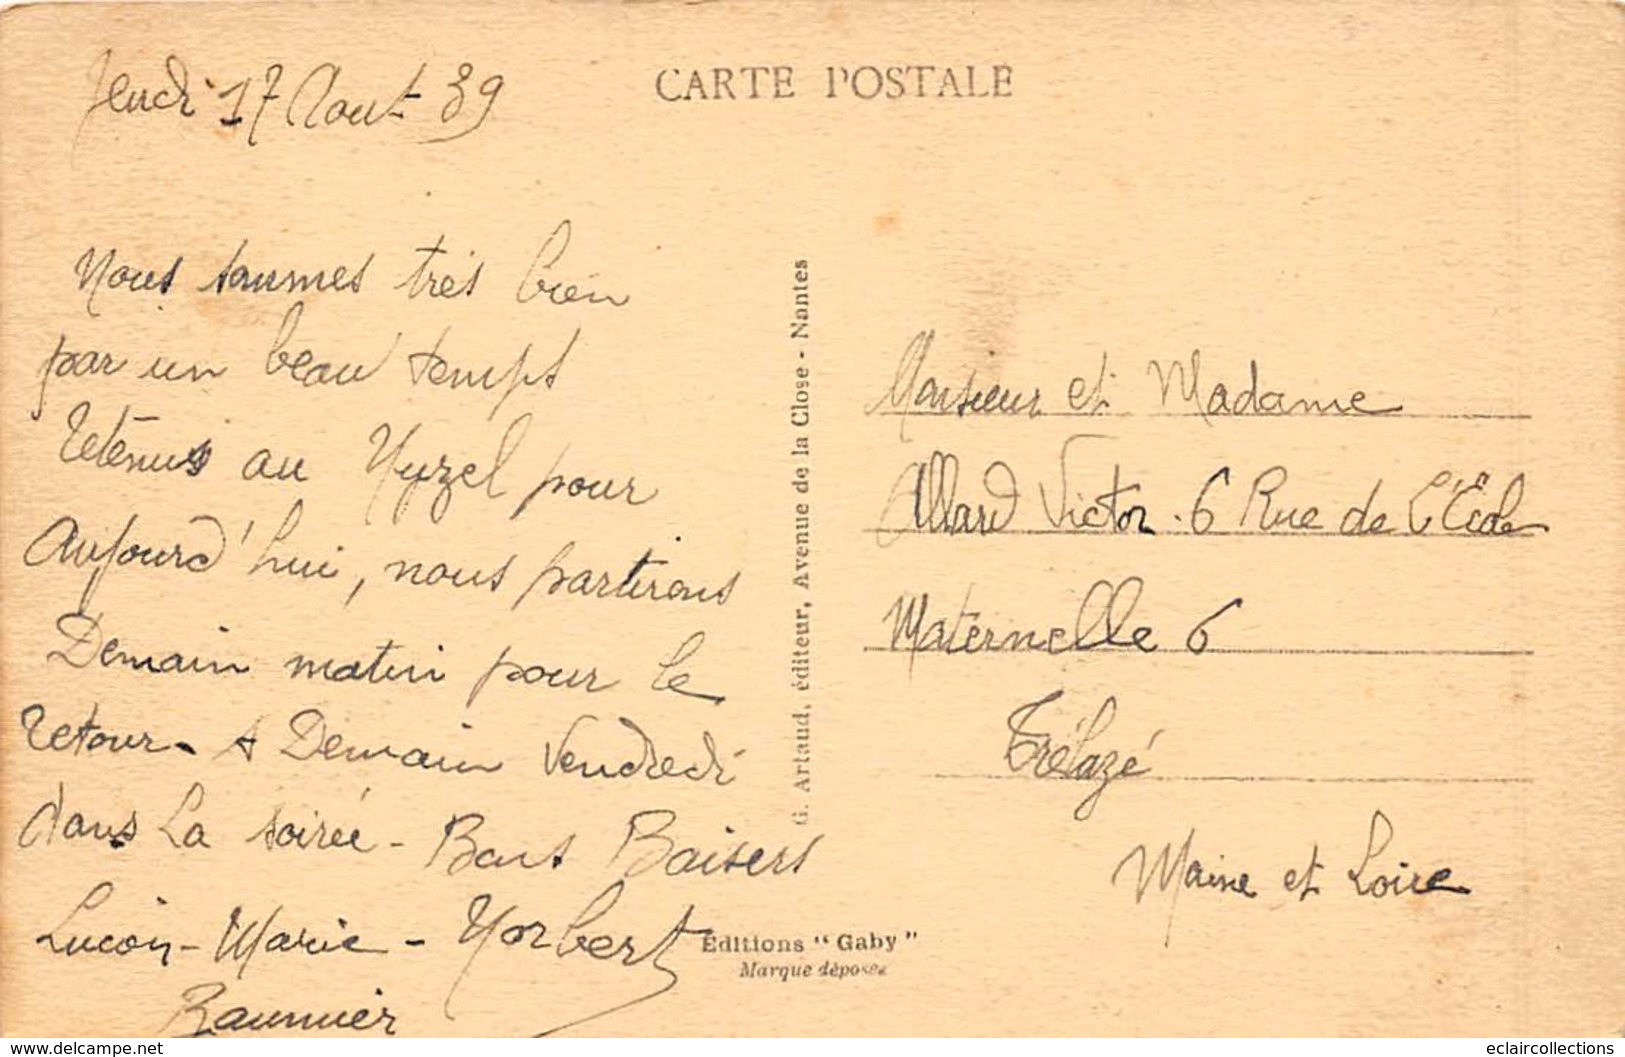 Jeudi 17 Aout 39
CARTE POSTALE
Nous sommes très bien
par un beau temps
retenus au pour
Aujourd'hui, nous partirons
Demain matin pour le
retour - A Demain Vendredi
dans La soirée - Bons Baisers
Lucien - Marie - Norbert
G. Artaud, éditeur, Avenue de la Close - Nantes
Monsieur et Madame
Allard Victor . 6 Rue de L'École
Maternelle 6
Trélazé
Maine et Loire
Editions "Gaby"
Marque déposée
www.delcampe.net
eclaircollections